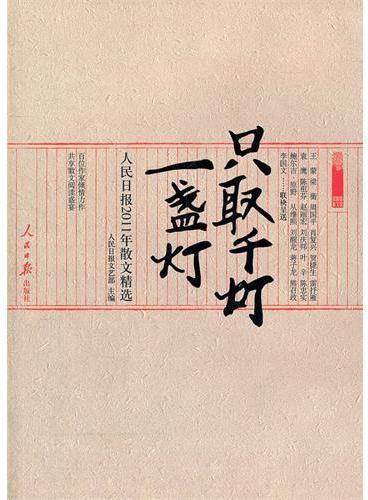 王蒙 梁衡 周国平 肖复兴 贺捷生 雷抒雁
袁鹰 陈祖芬 赵丽宏 刘庆邦 叶辛 陈忠实
鲍尔吉·原野 从维熙 刘醒龙 蒋子龙 熊召政
李国文……联袂
只取千灯
一盏灯
人民日报2011年散文精选
人民日报文艺部 主编
百位作家倾情力作
共享散文阅读盛宴
人民日报
出版社